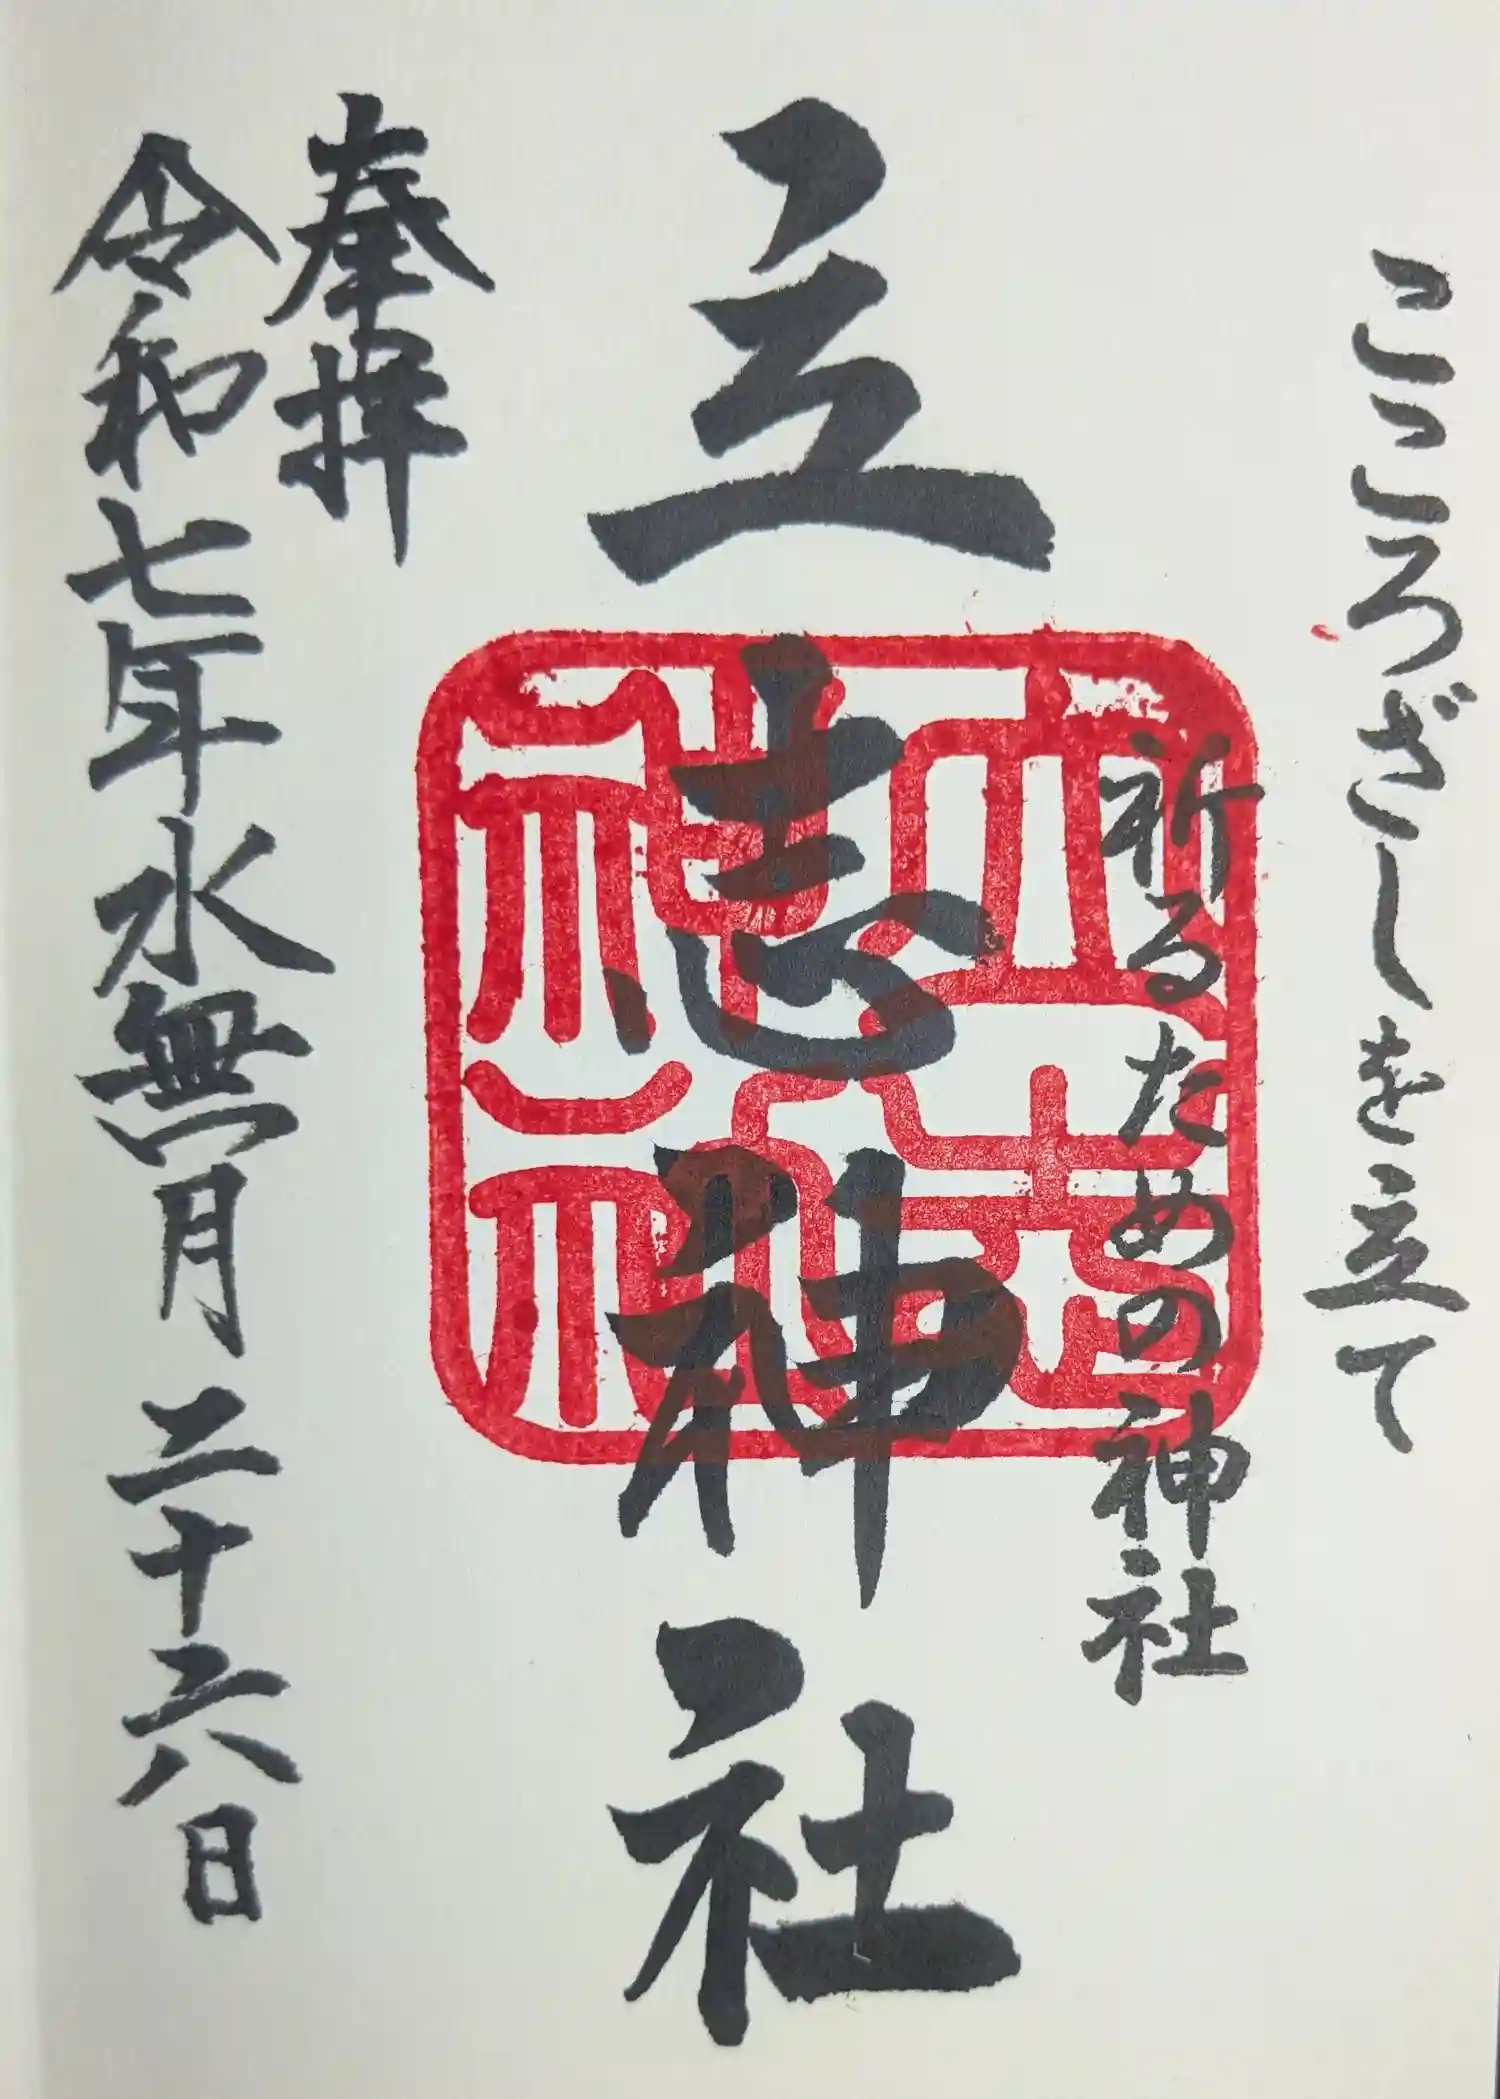 こころざしを立て
祈るための神社
立志神社
奉拝
令和七年水無月二十六日
立志神社